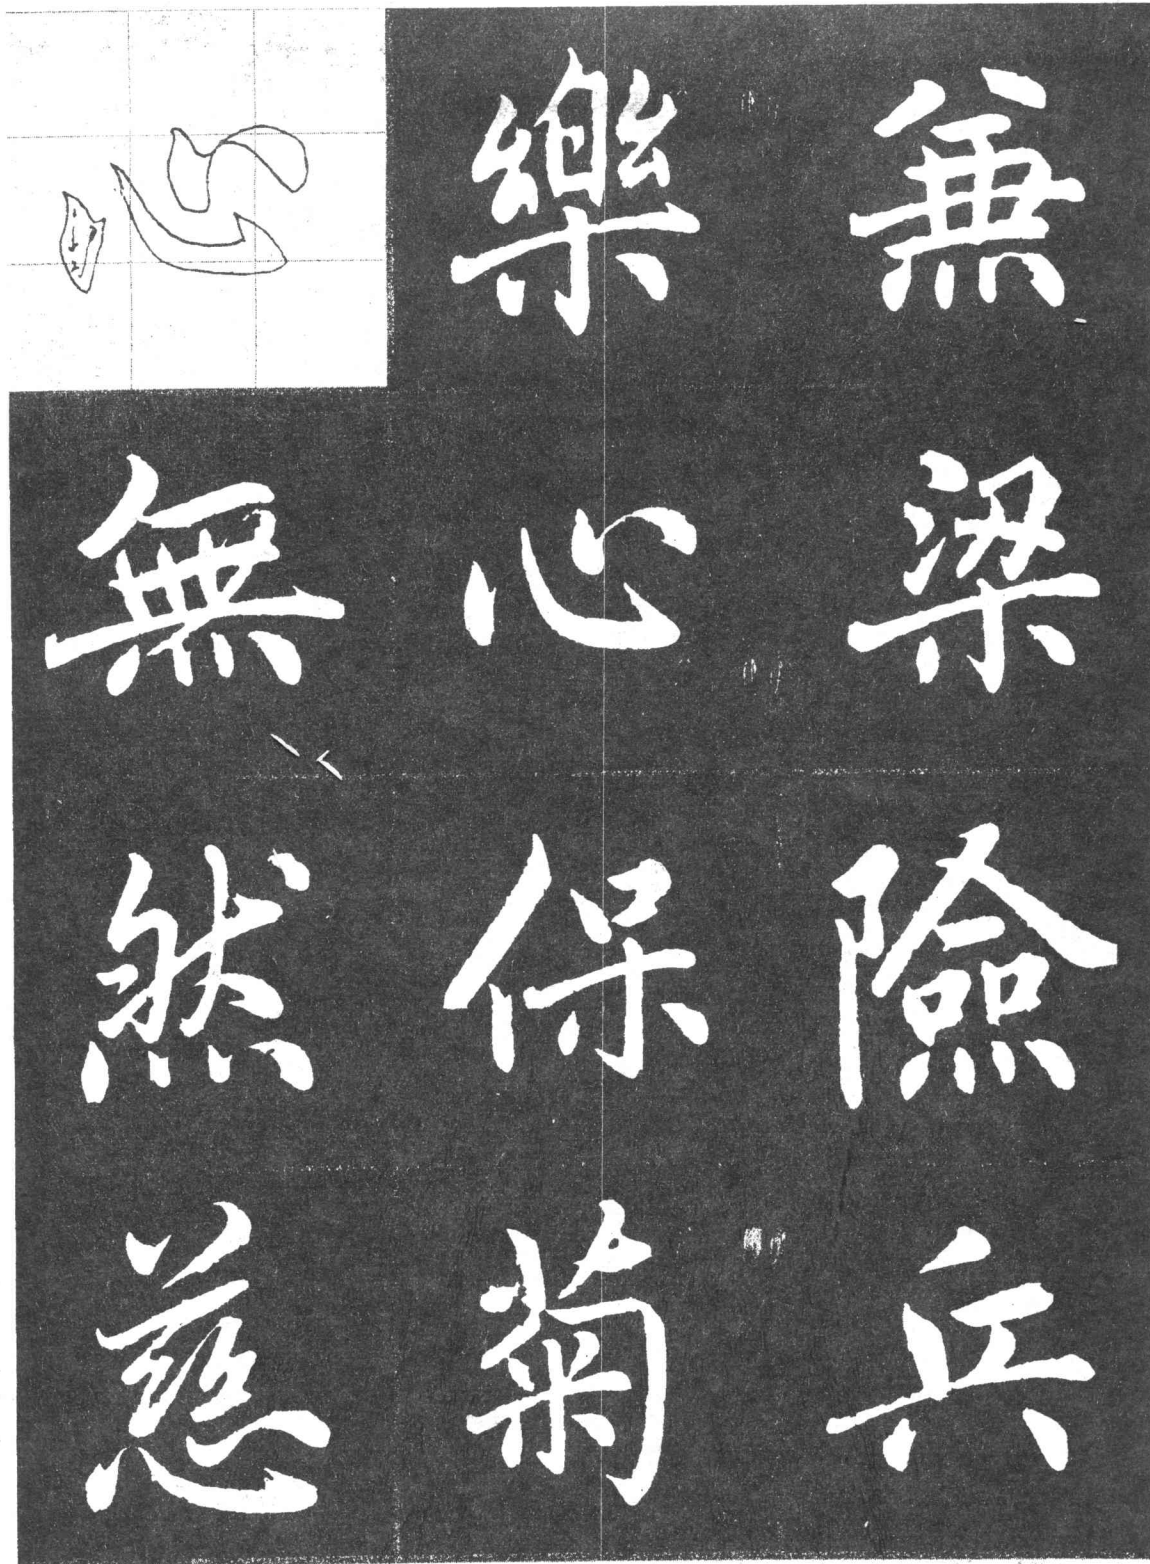 兼梁險兵
樂心保菊
心無然慈